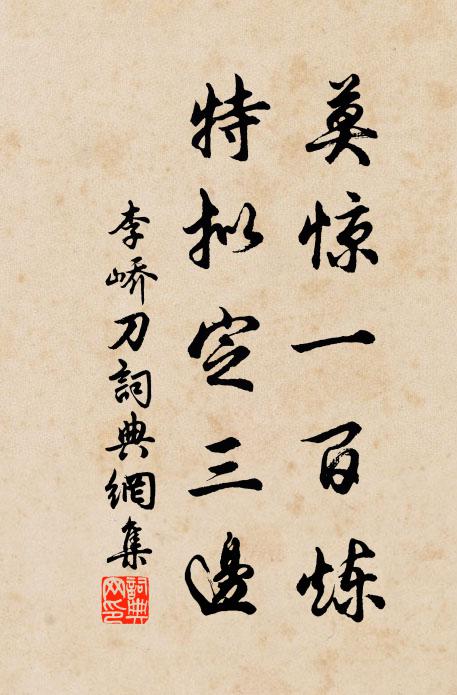 莫惊一百炼
特拟定三邊
李嶠刀詞典網集
詞典
网印